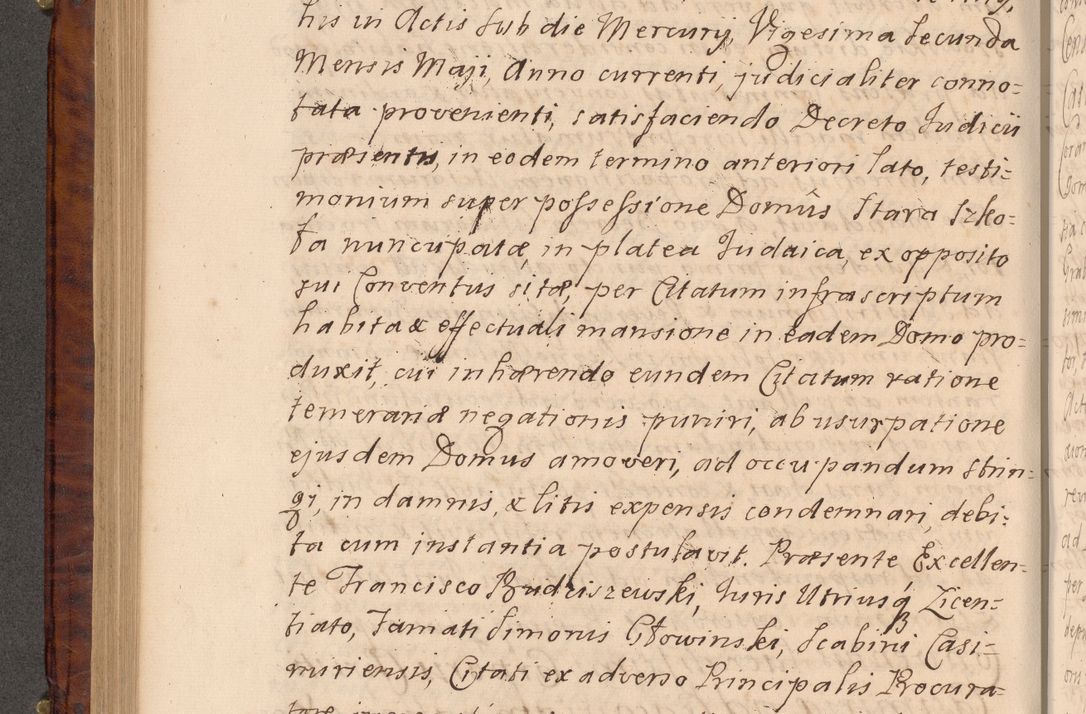 his in Actis sub die Mercurij, Vigesima Secunda
Mensis Maji, Anno currenti, judicialiter conno=
tata provenienti, satisfaciendo Decreto Judicii
præsentis, in eodem termino anteriori lato, testi=
monium super possessione Domûs Stara Szko=
ła nuncupatæ in platea Judaica, ex opposito
sui Conventus sitæ, per Citatum infrascriptum
habita & effectuali mansione in eadem Domo pro=
duxit, cui inhærendo eundem Citatum ratione
temerariæ negationis puniri, ab usurpatione
ejusdem Domus amoveri, ad occupandum strin=
gi, in damnis, & litis expensis condemnari, debi=
ta cum instantia postulavit. Præsente Excellen=
te Francisco Budziszewski, Juris Utriusq Licen=
tiato, Famati Simonis Głowinski, Scabini Casi=
miriensis, Citati ex adverso Principalis Procura=